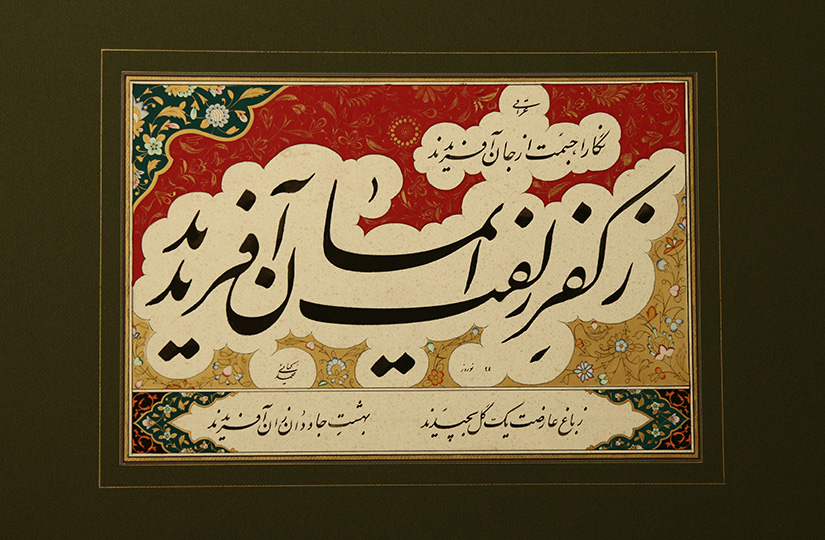 عراقی
نگارا جسمت از جان آفریدند
ز کفر زلفت ایمان آفریدند
۹۴ نوروز
ز باغ عارضت یک گل بچیدند
بهشتِ جاودان زان آفریدند